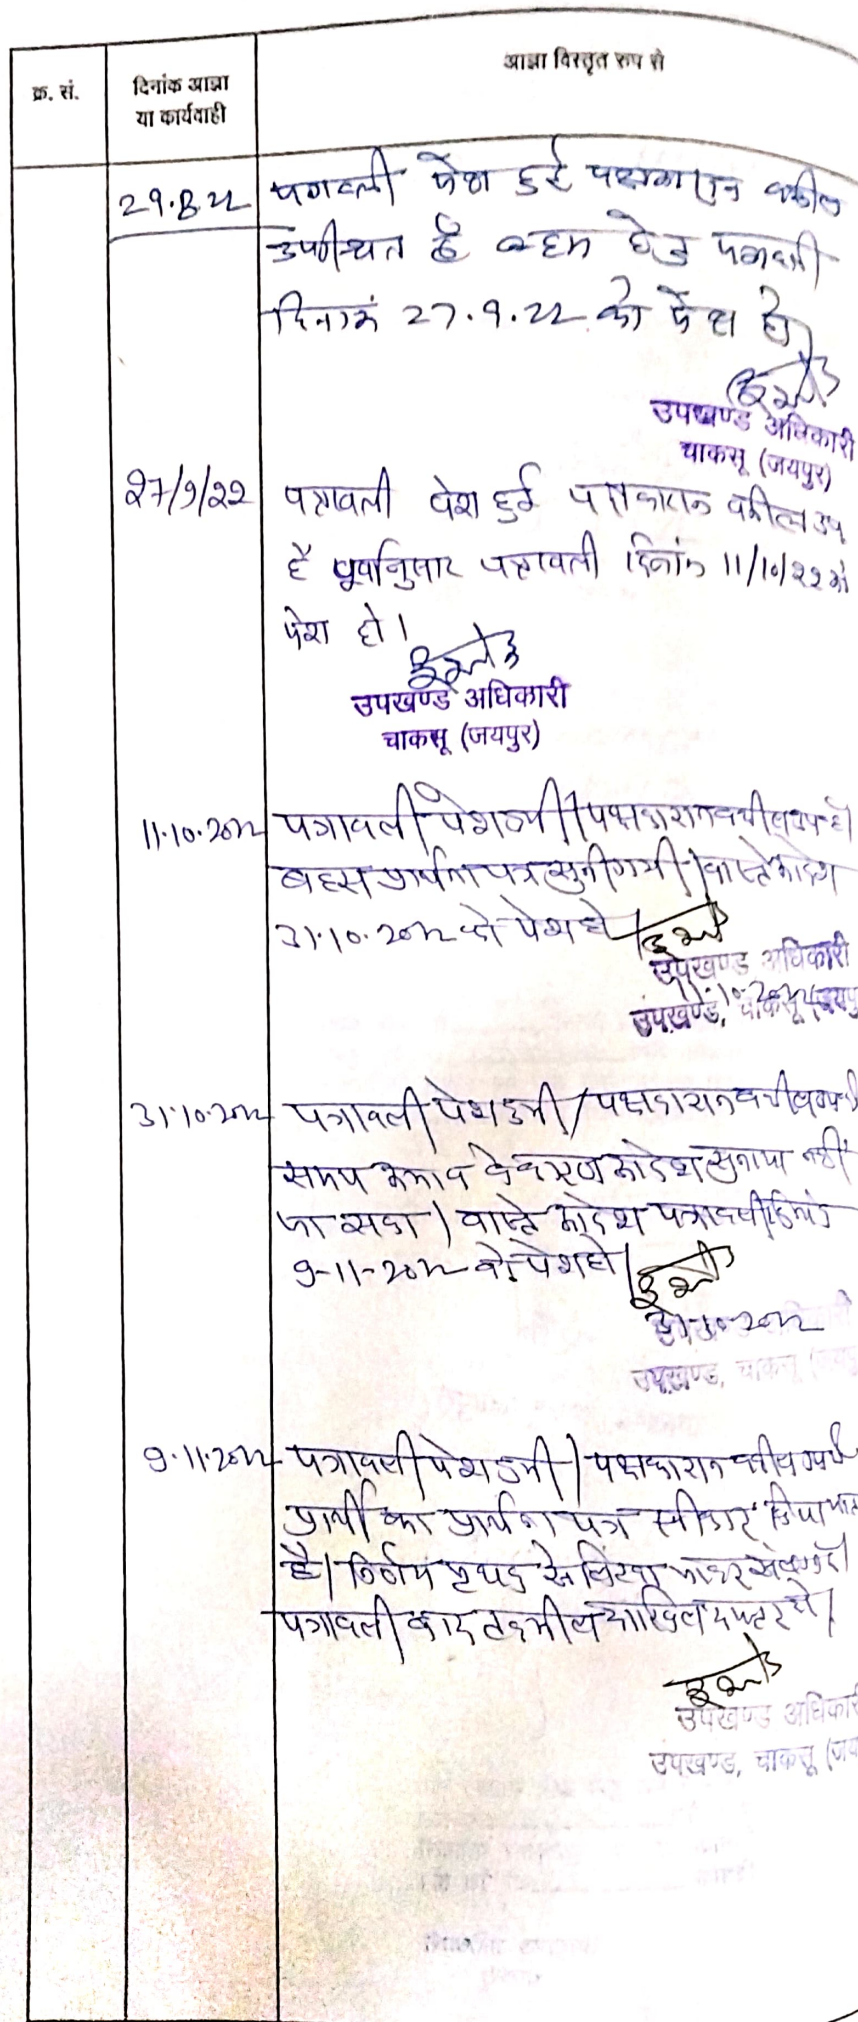 क्र. सं.
दिनांक आज्ञा
या कार्यवाही
आज्ञा विस्तृत रूप से
29.8.22
पत्रावली पेश हुई पक्षकारान वकील
उपस्थित है बहस हेतु पत्रावली
दिनांक 27.9.22 को पेश हो
उपखण्ड अधिकारी
चाकसू (जयपुर)
27/9/22
पत्रावली पेश हुई पक्षकारान वकील उप
है पूर्वानुसार पत्रावली दिनांक 11/10/22 को
पेश हो।
उपखण्ड अधिकारी
चाकसू (जयपुर)
11.10.2022
पत्रावली पेश हुयी। पक्षकारान वकील उप है
बहस प्रार्थना पत्र सुनी गयी। वास्ते आदेश
31.10.2022 को पेश हो।
उपखण्ड अधिकारी
11.10.2022
उपखण्ड, चाकसू (जयपु
31.10.2022
पत्रावली पेश हुयी। पक्षकारान वकील उप है
समय अभाव के कारण आदेश सुनाया नहीं
जा सका। वास्ते आदेश पत्रावली दिनांक
9-11-2022 को पेश हो।
31.10.2022
उपखण्ड, चाकसू (जयपु
9.11.2022
पत्रावली पेश हुयी। पक्षकारान वकील उप है
प्रार्थी का प्रार्थना पत्र स्वीकार किया जाता
है। निर्णय पृथक से लिखा जाकर
पत्रावली बाद तकमील दाखिल दफ्तर हो।
उपखण्ड अधिकारी
उपखण्ड, चाकसू (जय